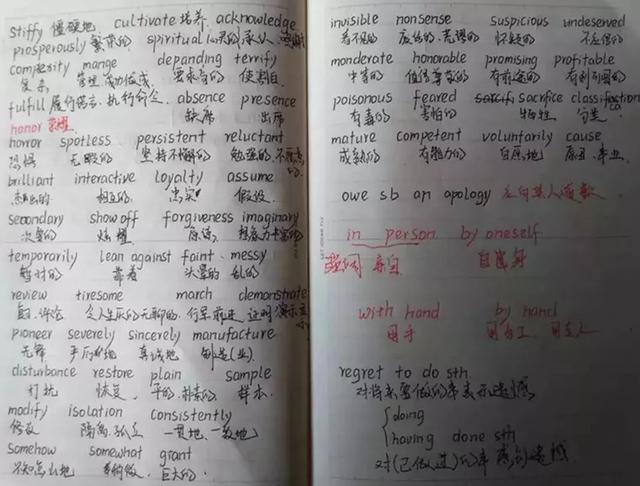 stiffy 僵硬地 cultivate 培养 acknowledge
prosperously 繁荣的 spiritual 心灵的 承认
compexity mange depanding terrify
复杂 管理 成功做成 要求高的 使害怕
fulfill 履行诺言 执行命令 absence presence
honor 荣耀 缺席 出席
horror spotless persistent reluctant
恐惧 无暇的 坚持不懈的 勉强的 不愿意的
brilliant interactive loyalty assume
杰出的 相互的 忠实 假设
secondary show off forgiveness imaginary
次要的 炫耀 原谅
temporarily lean against faint messy
暂时的 靠着 头晕的 乱的
review tiresome march demonstrate
令人生厌的 无聊的 行军 前进 证明 演示
pioneer severely sincerely manufacture
先锋 真诚地 制造(业)
disturbance restore plain sample
打扰 恢复 平的 朴素的 样本
modify isolation consistently
修改 隔离 孤立 一贯地 一致地
somehow somewhat grant
不知怎么地 有几分 巨大的
invisible nonsense suspicious undeserved
看不见的 荒谬的 怀疑的 不应得的
monderate honorable promising profitable
中等的 值得尊敬的 有前途的 有利可图的
poisonous feared sacrifice classifcation
有毒的 害怕的 牺牲 分类
mature competent voluntarily cause
成熟的 有能力的 自愿地 原因 事业
owe sb an apology 应向某人道歉
in person by oneself
亲自 自
with hand by hand
用手 用手工
regret to do sth.
对将来要做的事表示遗憾
doing
having done sth
对(已做过)的事感到遗憾